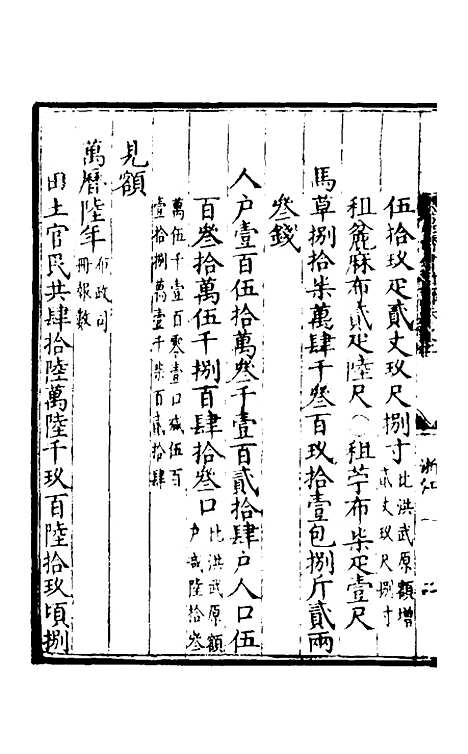 伍拾玖疋貳丈玖尺捌寸比洪武原額增貳丈玖尺捌寸
租麄麻布貳疋陸尺〇租苧布柒疋壹尺
馬草捌拾柒萬肆千叁百玖拾壹包捌斤貳兩
叁錢
人户壹百伍拾萬叁千壹百貳拾肆户人口伍
百叁拾萬伍千捌百肆拾叁口比洪武原額户減陸拾叁
萬伍千壹百零壹口減伍百
壹拾捌萬壹千柒百貳拾肆
見額
萬曆陸年布政司冊報數
田土官民共肆拾陸萬陸千玖百陸拾玖頃捌
浙江